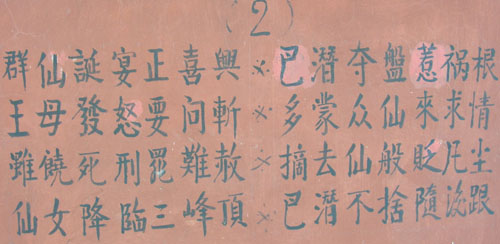 (2)
群仙誕宴正喜興×巴潛夺盤惹祸根
王母發怒要问斬×多蒙众仙來求情
雖饒死刑罪難赦×摘去仙般贬凡尘
仙女降臨三峰頂×巴潛不捨隨後跟